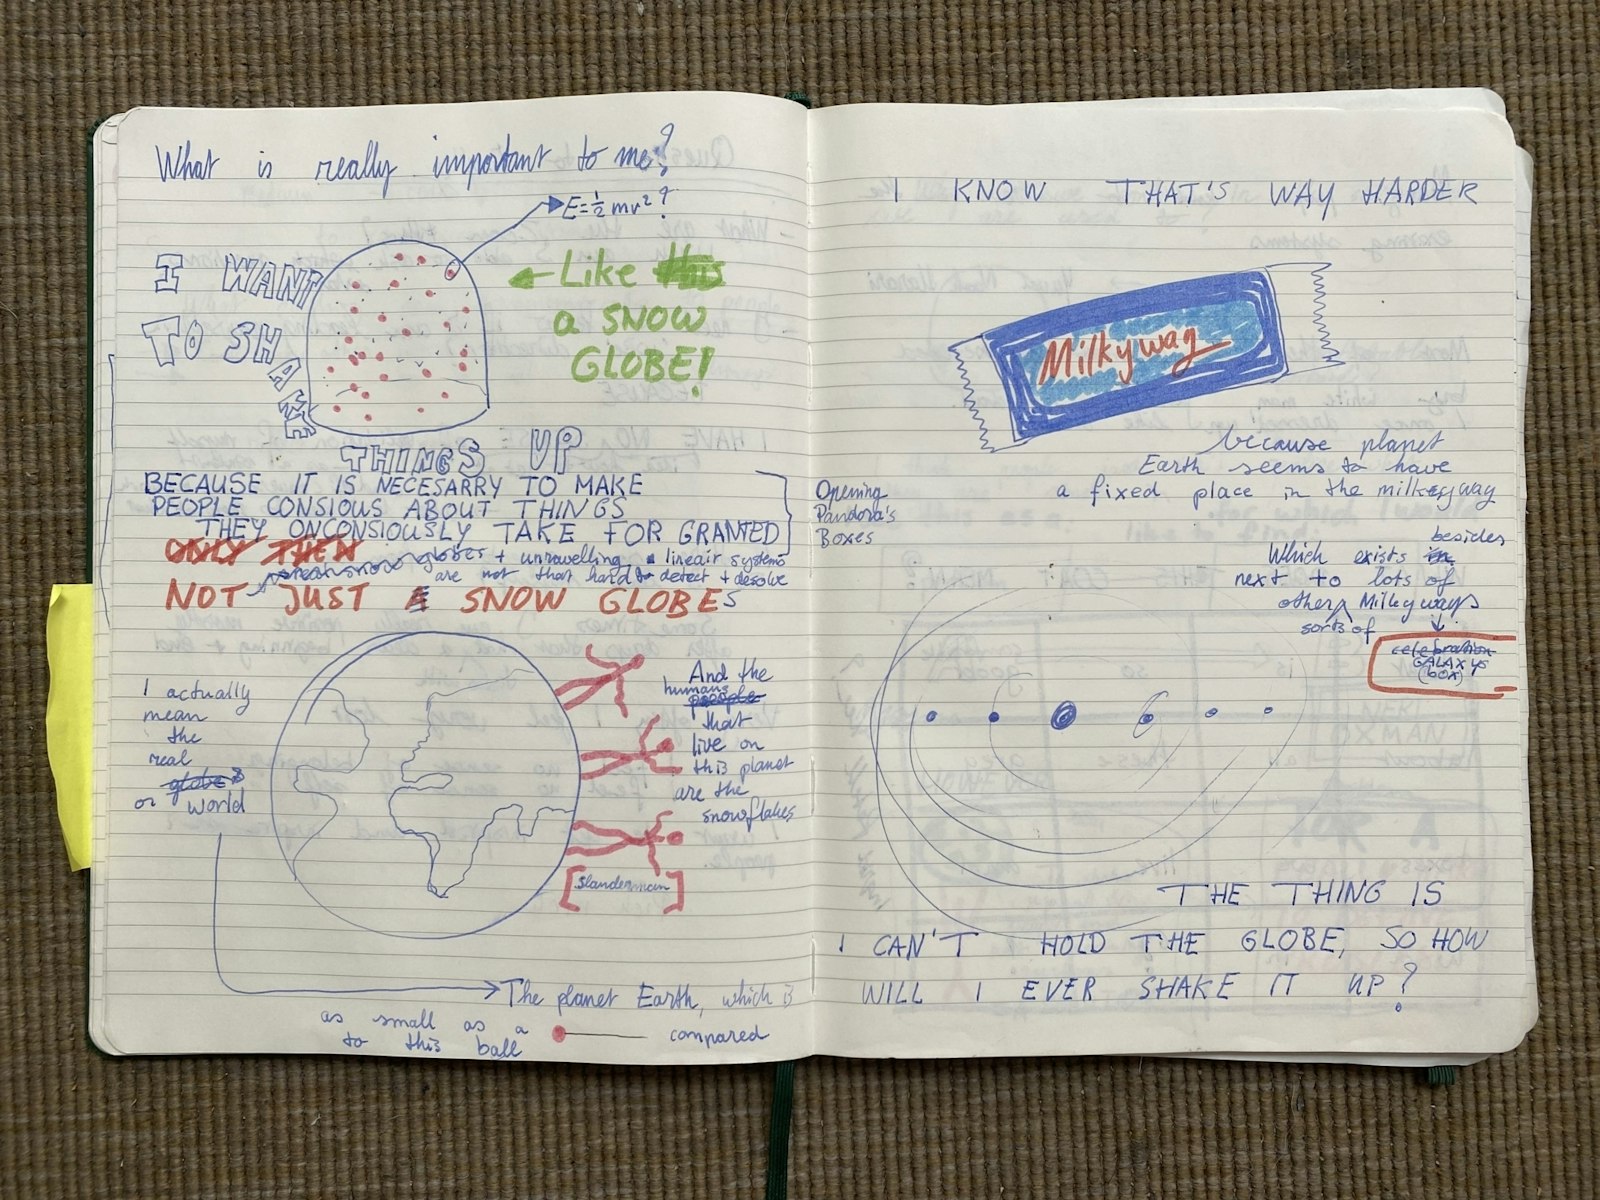 What is really important to me?
E=½mv²?
I WANT
TO SHAKE
THINGS UP
← Like this
a SNOW
GLOBE!
BECAUSE IT IS NECESARRY TO MAKE
PEOPLE CONSIOUS ABOUT THINGS
THEY ONCONSIOUSLY TAKE FOR GRANTED
Opening
Pandora's
Boxes
ONLY THEN
snow globes + unravelling lineair systems
are not that hard to detect + desolve
NOT JUST A SNOW GLOBES
I actually
mean
the
real
globe
or world
And the
humans
people
that
live on
this planet
are the
snowflakes
[Slanderman]
The planet Earth, which is
as small as a compared
to this ball
I KNOW THAT'S WAY HARDER
Milkyway
because planet
Earth seems to have
a fixed place in the milkyway
besides
Which exists in
next to lots of
other Milkyways
sorts of
celebration
GALAXYS
(BOX)
THE THING IS
I CAN'T HOLD THE GLOBE, SO HOW
WILL I EVER SHAKE IT UP?